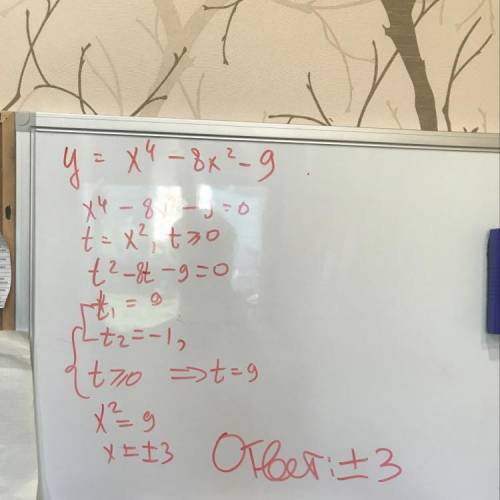 y = x⁴ - 8x² - 9
x⁴ - 8x² - 9 = 0
t = x², t ≥ 0
t² - 8t - 9 = 0
t₁ = 9
t₂ = -1,
t ≥ 0 ⇒ t = 9
x² = 9
x = ±3
Ответ: ±3